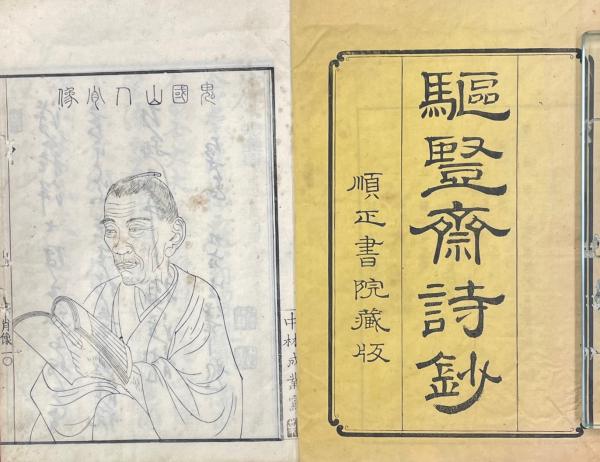 驅豎齋詩鈔
順正書院藏版
鬼國山人肖像
中林成業寫
肖像一〇